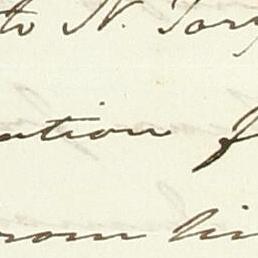 to N. Tor
ation f
rom lin